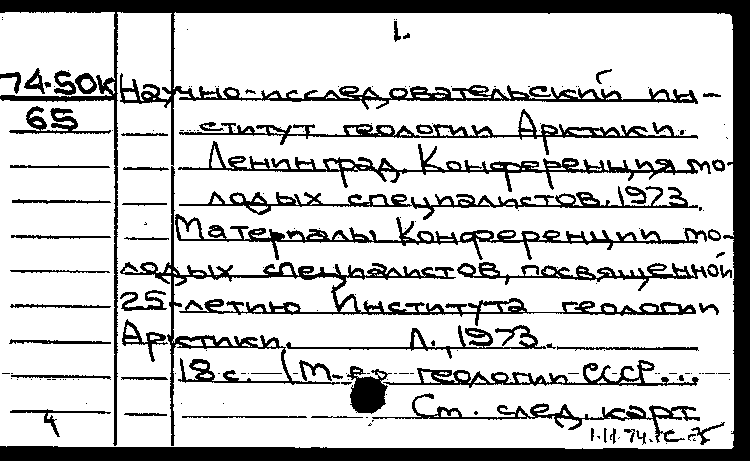 1.
74-50К Научно-исследовательский ин-
65
ститут геологии Арктики.
Ленинград. Конференция мо-
лодых специалистов. 1973
Материалы Конференции мо-
лодых специалистов, посвященной
25-летию Института геологии
Арктики. Л., 1973.
18 с. (М-во геологии СССР...
См. след. карт
4